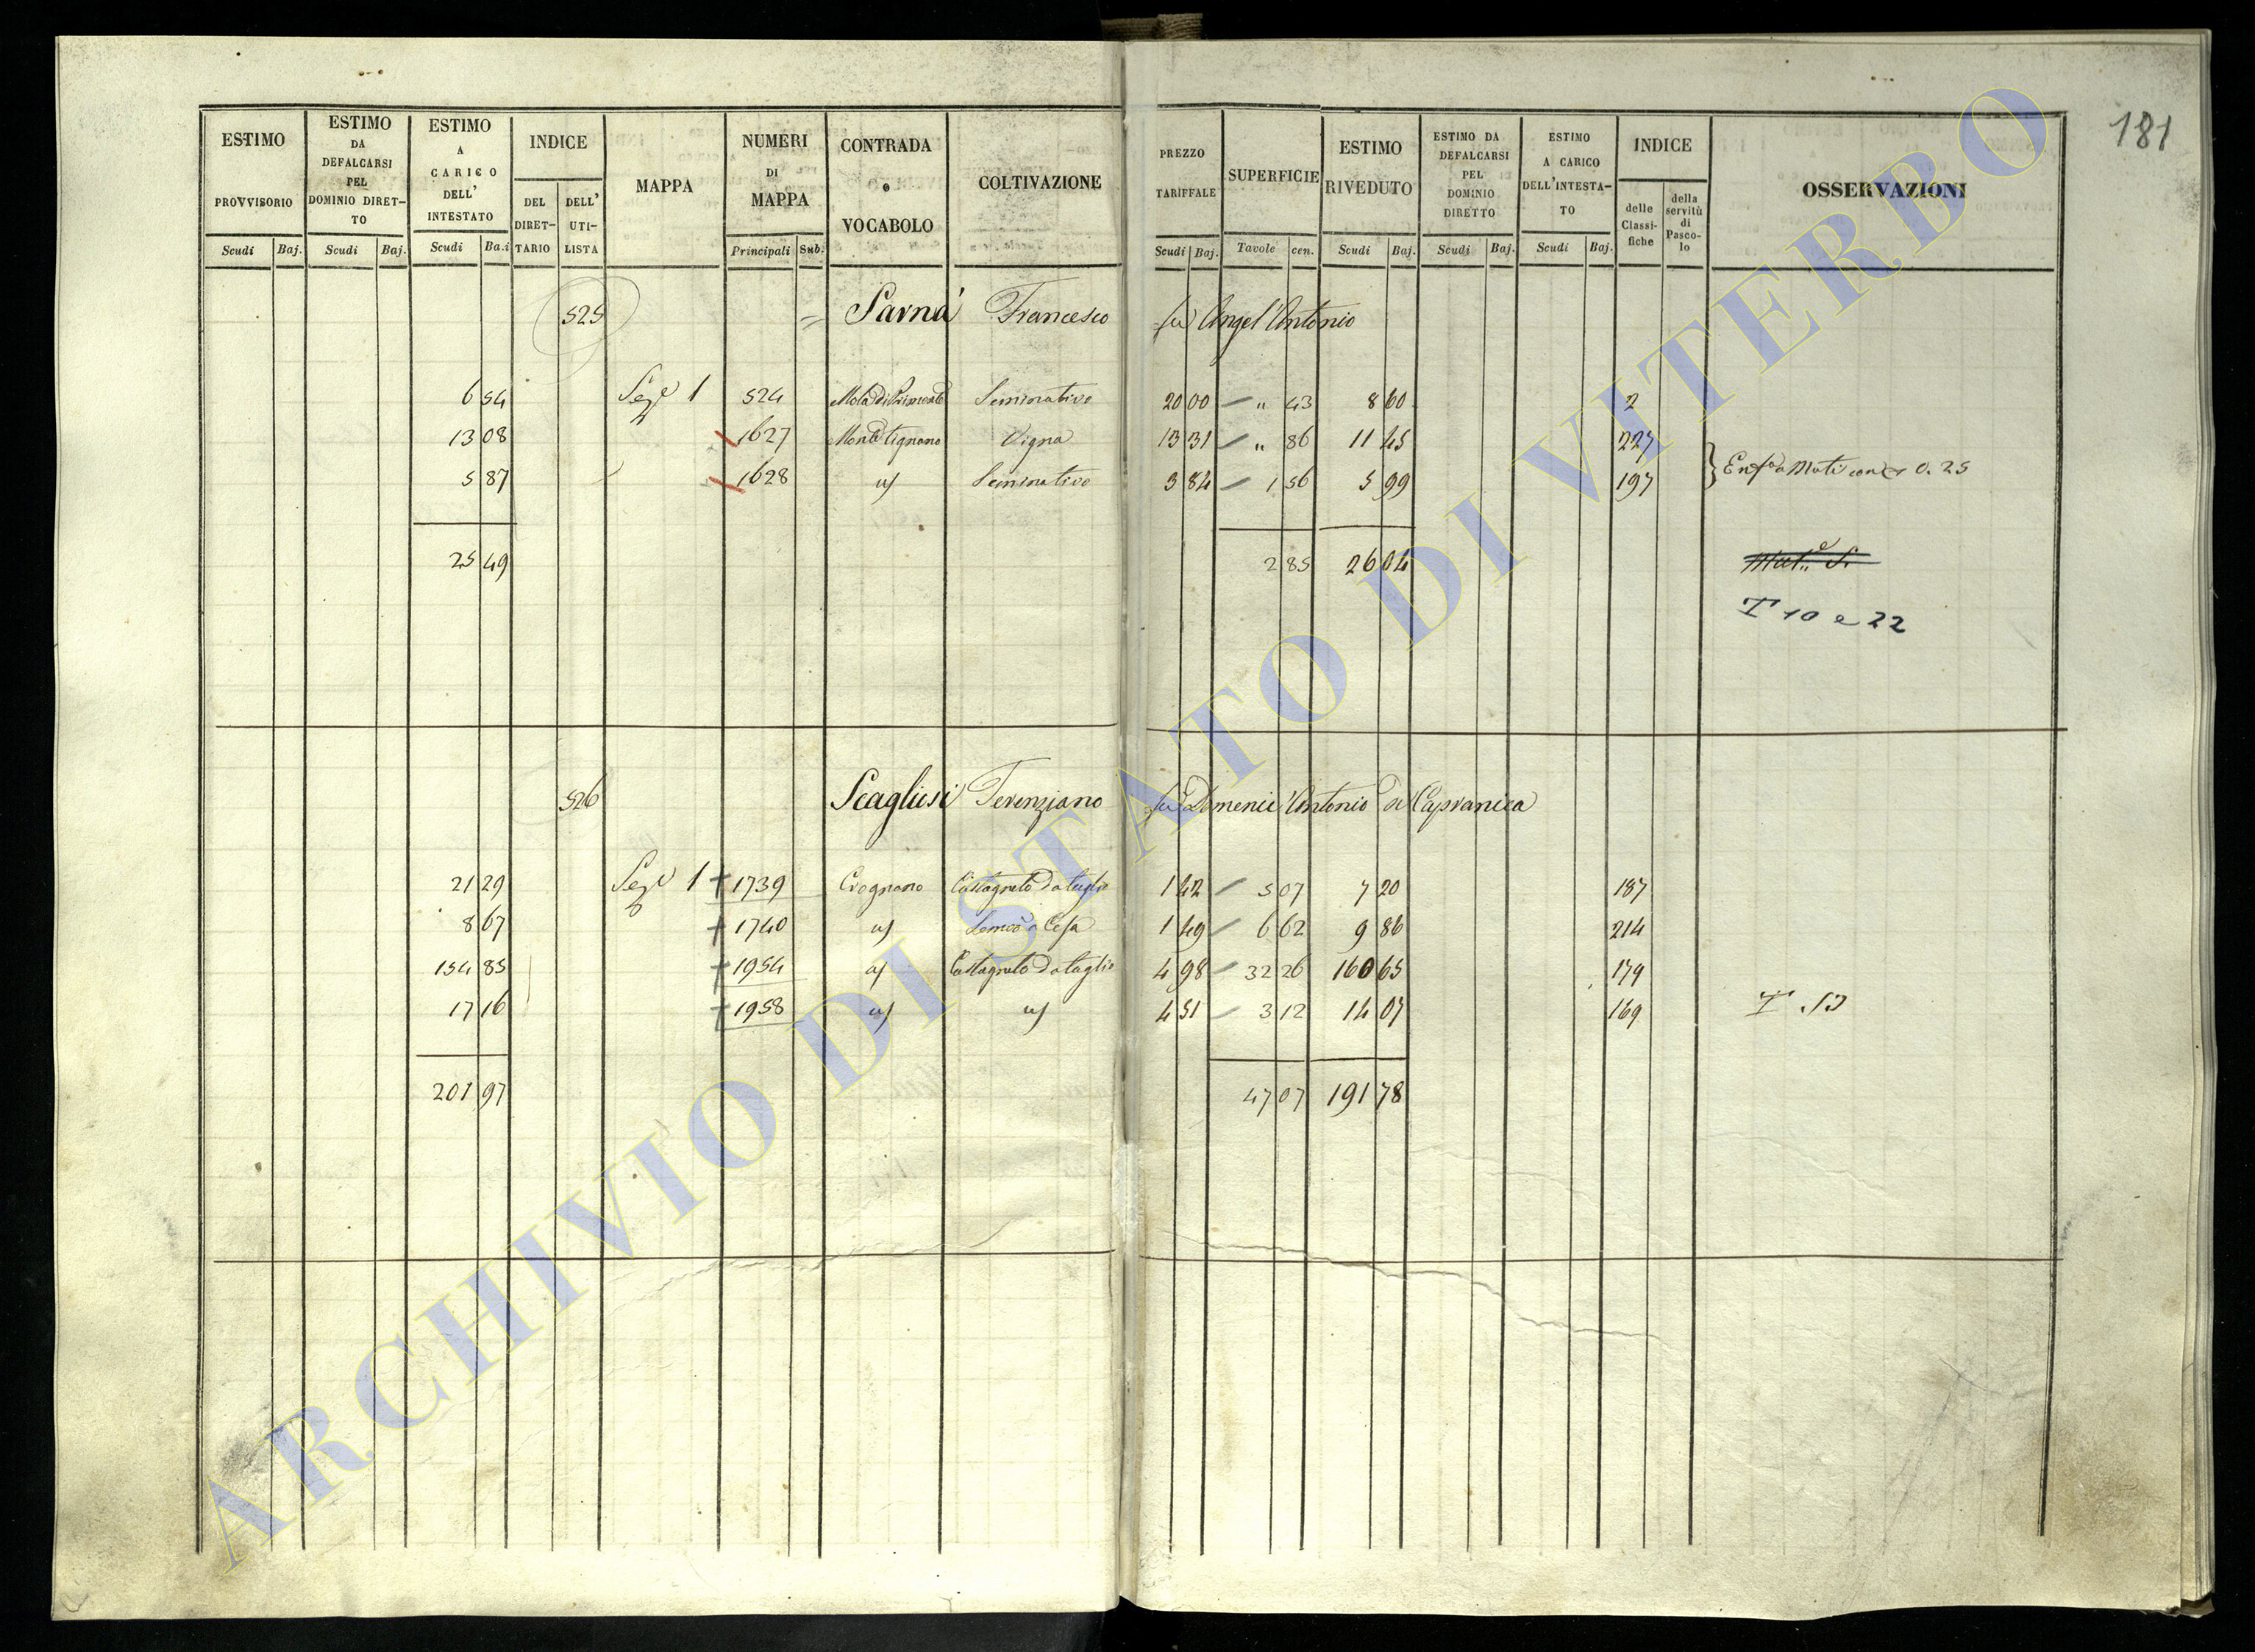 181
ESTIMO PROVVISORIO Scudi Baj.
ESTIMO DA DEFALCARSI PEL DOMINIO DIRET-TO Scudi Baj.
ESTIMO A CARICO DELL' INTESTATO Scudi Ba.i
INDICE DEL DIRET-TARIO DELL' UTI-LISTA
MAPPA
NUMERI DI MAPPA Principali Sub.
CONTRADA o VOCABOLO
COLTIVAZIONE
PREZZO TARIFFALE Scudi Baj.
SUPERFICIE Tavole cen.
ESTIMO RIVEDUTO Scudi Baj.
ESTIMO DA DEFALCARSI PEL DOMINIO DIRETTO Scudi Baj.
ESTIMO A CARICO DELL'INTESTA-TO Scudi Baj.
INDICE delle Classi-fiche della servitù di Pasco-lo
OSSERVAZIONI
525 Sarnà Francesco fu Angel'Antonio
6 54 Seze 1 524 Seminativo 20 00 " 43 8 60 2
13 08 1627 Monte Tignano Vigna 13 31 " 86 11 45 227
5 87 1628 Seminativo 3 84 1 56 5 99 197
0.25
25 49 2 85 26 04
T 10 e 22
526 Scagliesi Terenziano fu Domenic'Antonio di Capranica
21 29 Seze 1 1739 Crognano Castagneto da taglio 1 42 5 07 7 20 187
8 67 1740 1 49 6 62 9 86 214
154 85 1954 Castagneto da taglio 4 98 32 26 160 65 179
17 16 1958 4 51 3 12 14 07 169 T. 13
201 97 47 07 191 78
ARCHIVIO DI STATO DI VITERBO